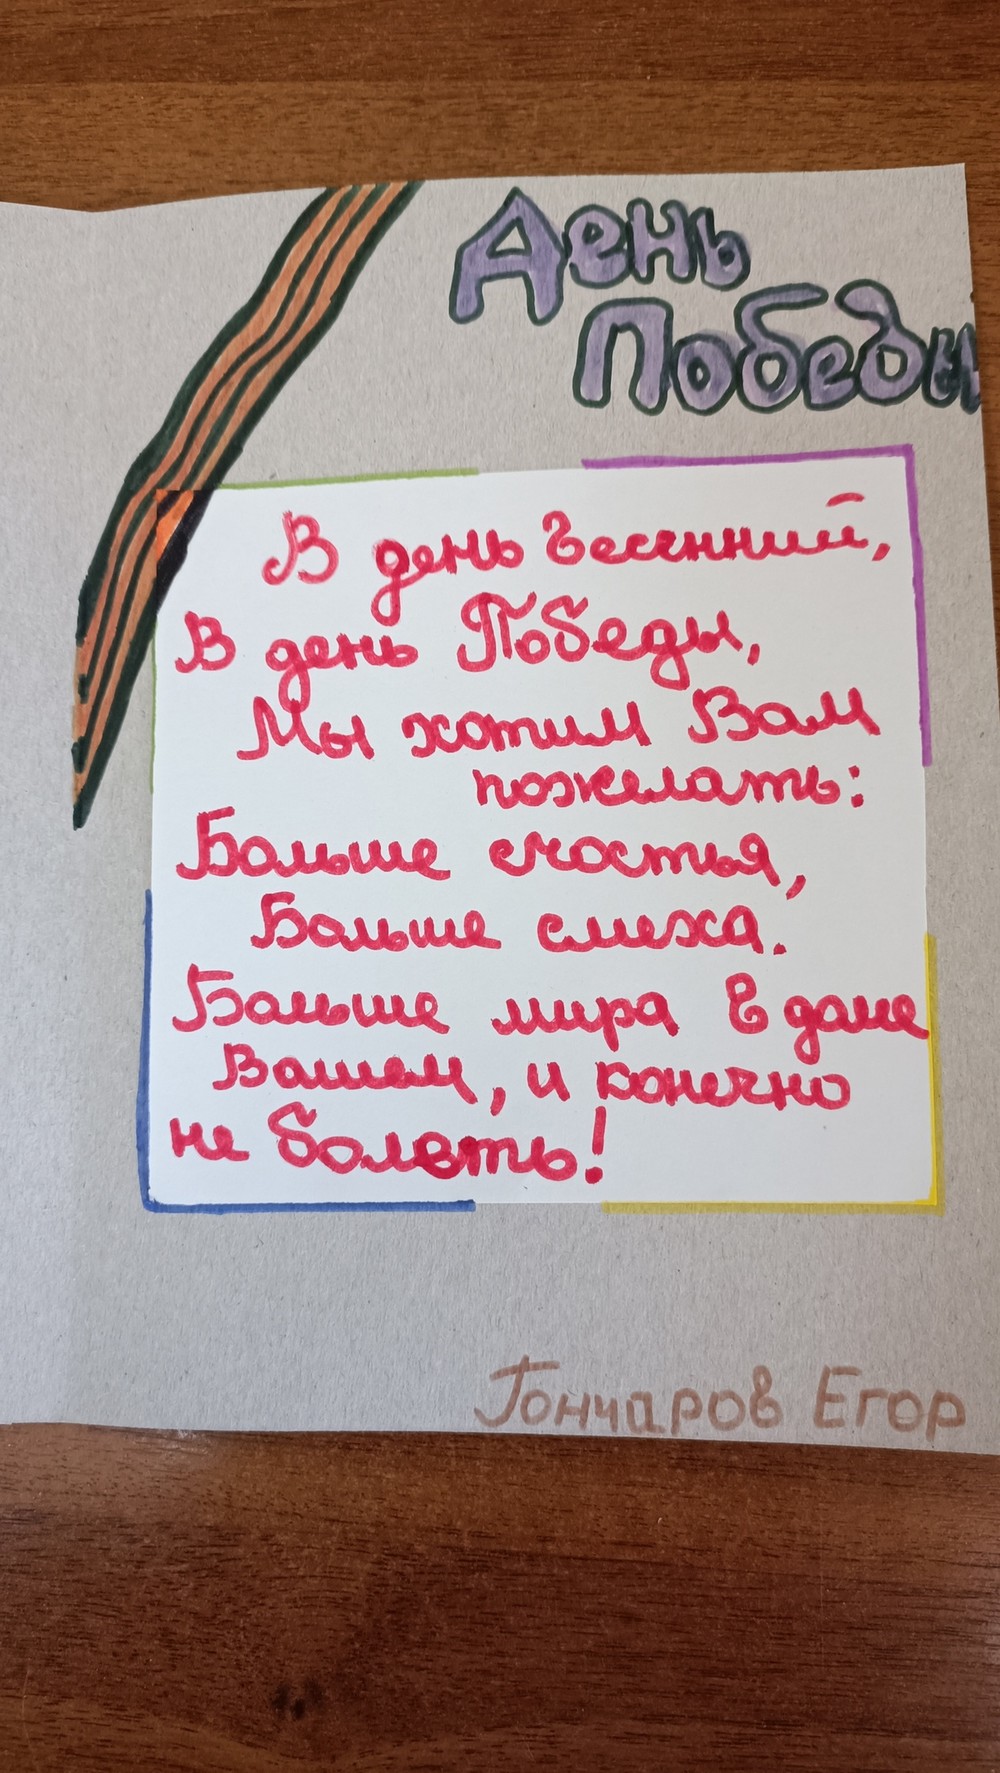 День
Победы
В день весенний,
В день Победы,
Мы хотим Вам
пожелать:
Больше счастья,
Больше смеха.
Больше мира в доме
Вашем, и конечно
не болеть!
Гончаров Егор